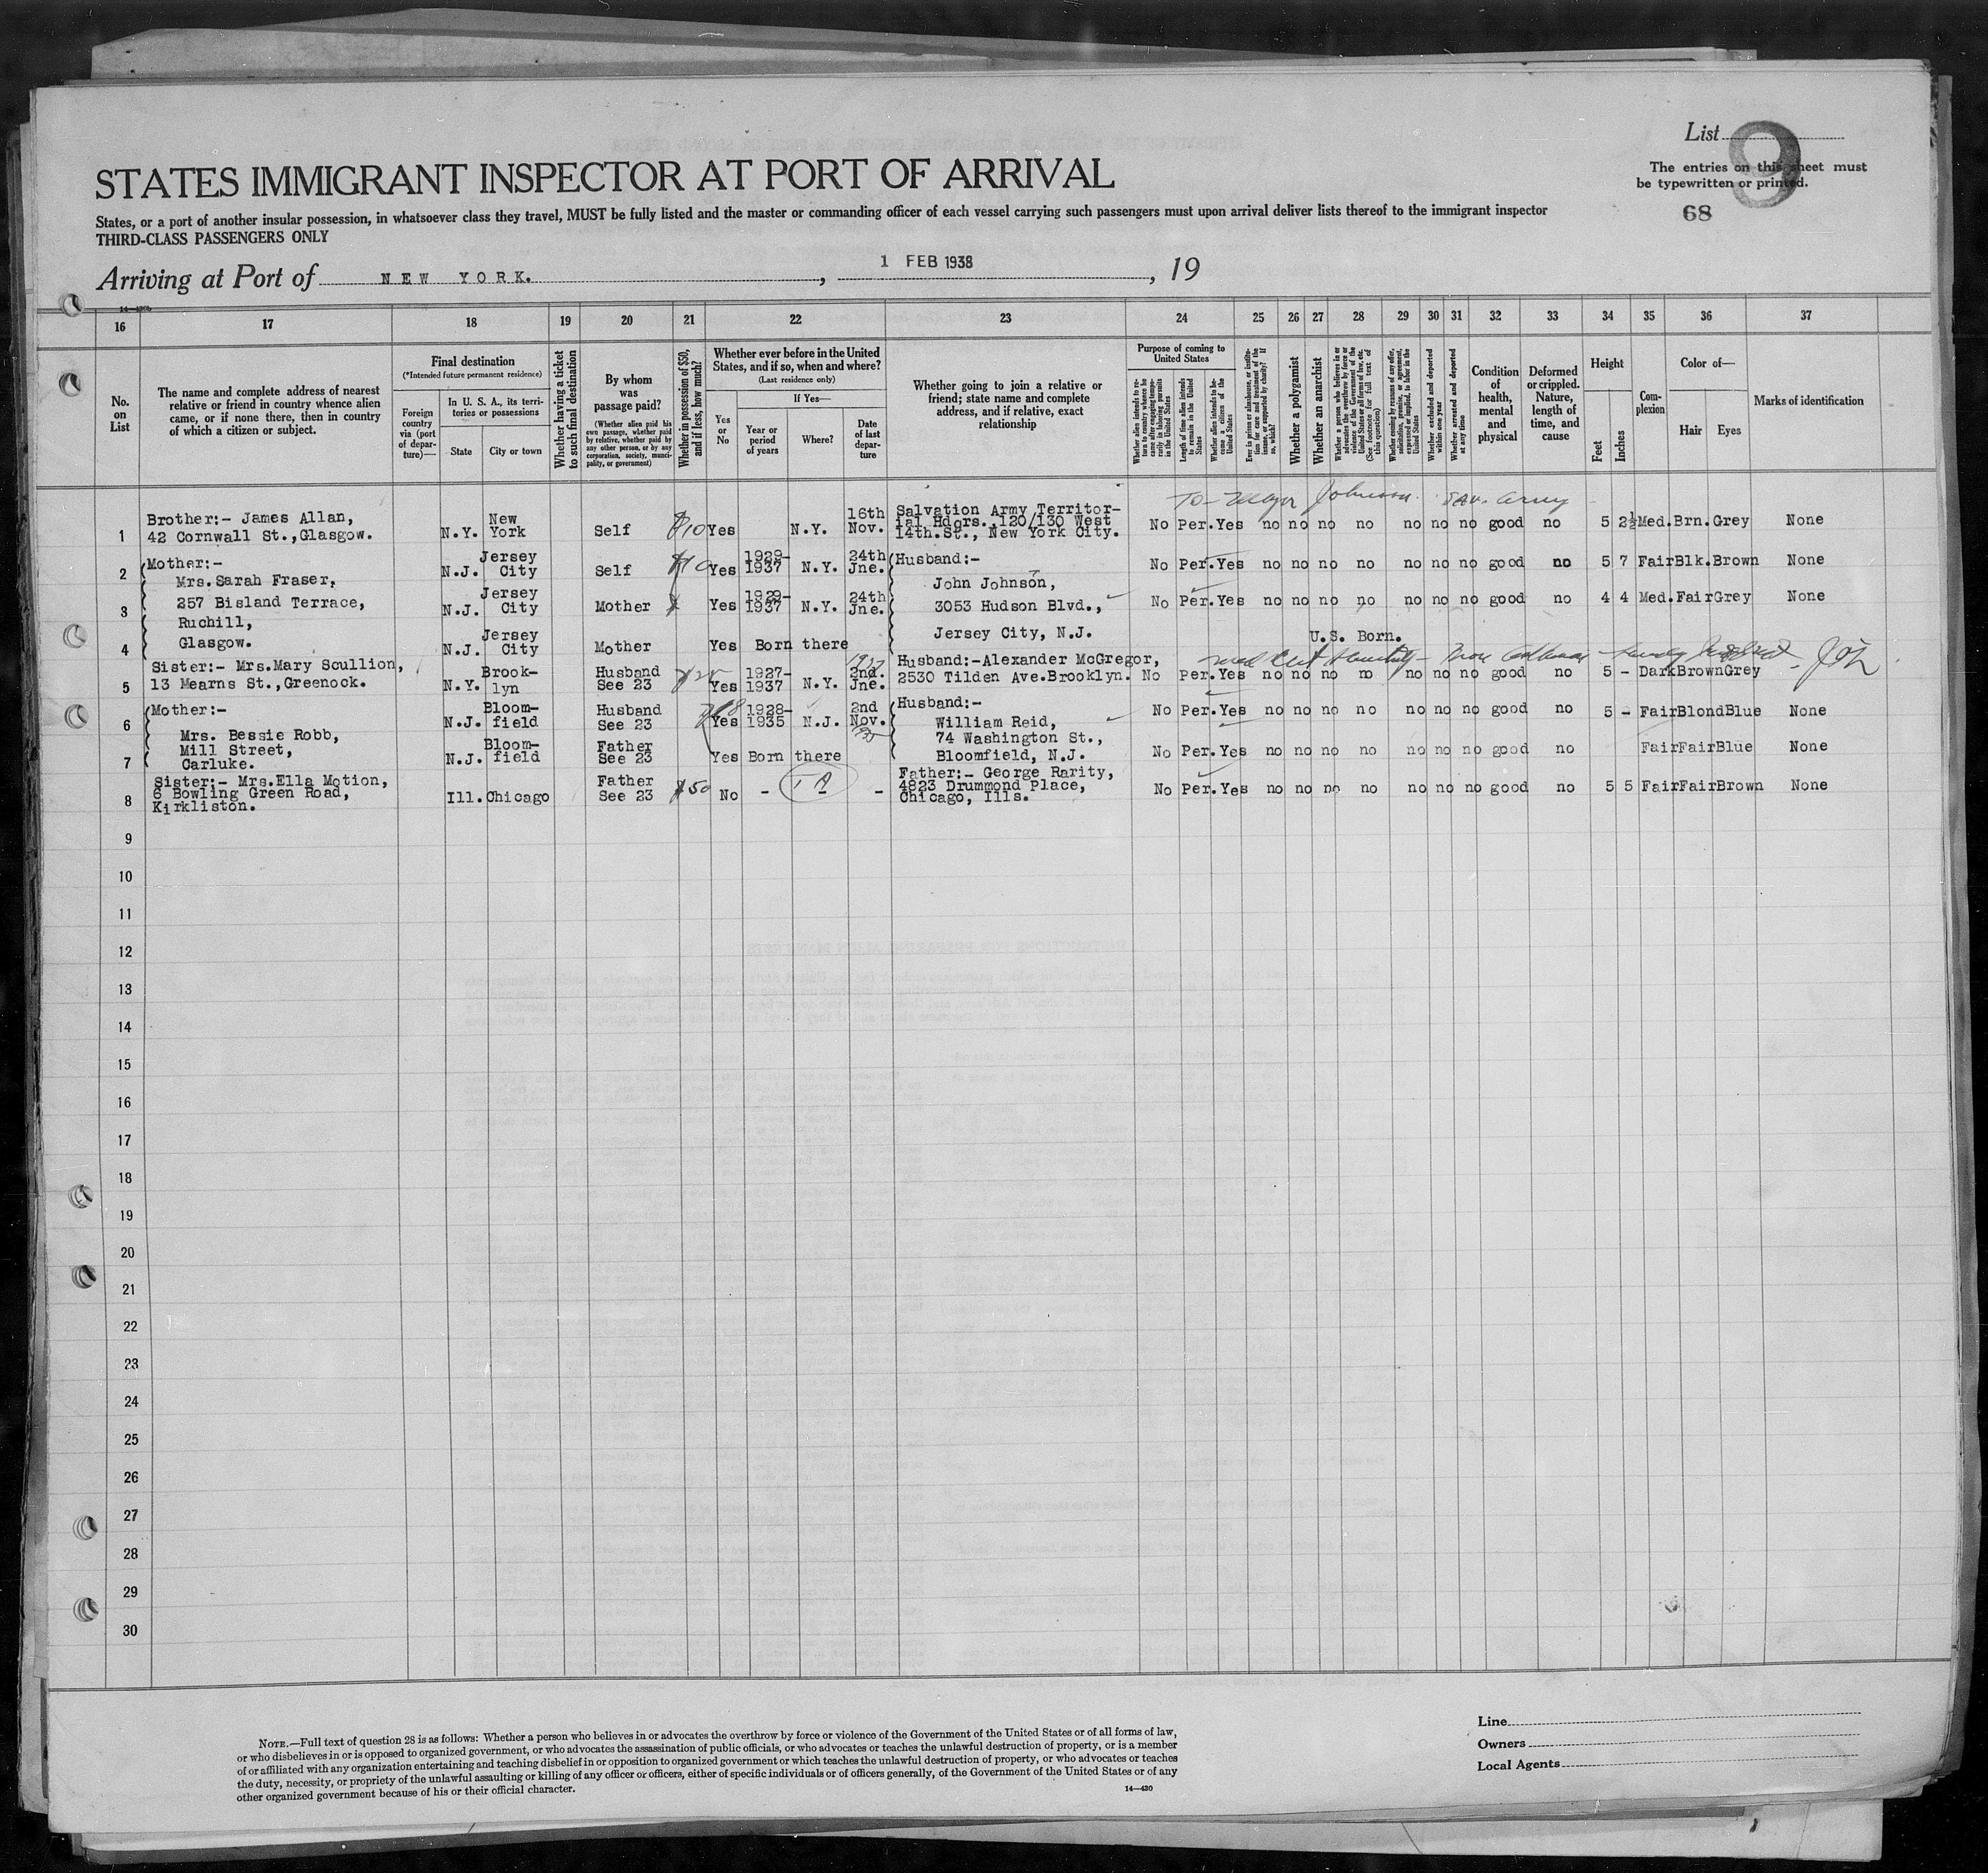 List 9
The entries on this sheet must
be typewritten or printed.
68
STATES IMMIGRANT INSPECTOR AT PORT OF ARRIVAL
States, or a port of another insular possession, in whatsoever class they travel, MUST be fully listed and the master or commanding officer of each vessel carrying such passengers must upon arrival deliver lists thereof to the immigrant inspector
THIRD-CLASS PASSENGERS ONLY
Arriving at Port of NEW YORK. , 1 FEB 1938 , 19
16 17 18 19 20 21 22 23 24 25 26 27 28 29 30 31 32 33 34 35 36 37
No. on List
The name and complete address of nearest
relative or friend in country whence alien
came, or if none there, then in country
of which a citizen or subject.
Final destination
(*Intended future permanent residence)
Foreign country via (port of departure)—
In U. S. A., its territories or possessions
State
City or town
Whether having a ticket to such final destination
By whom was passage paid?
(Whether alien paid his own passage, whether paid by relative, whether paid by any other person, or by any corporation, society, municipality, or government)
Whether in possession of $50, and if less, how much?
Whether ever before in the United
States, and if so, when and where?
(Last residence only)
Yes or No
If Yes—
Year or period of years
Where?
Date of last departure
Whether going to join a relative or
friend; state name and complete
address, and if relative, exact
relationship
Purpose of coming to United States
Length of time alien intends to remain in the United States
Whether alien intends to become a citizen of the United States
Whether a polygamist
Whether an anarchist
(See footnote for full text of this question)
Whether excluded and deported within one year
Whether arrested and deported at any time
Condition of health, mental and physical
Deformed or crippled. Nature, length of time, and cause
Height
Feet
Inches
Complexion
Color of—
Hair
Eyes
Marks of identification
To - Major Johnson. Sav. Army
1 Brother:- James Allan, 42 Cornwall St.,Glasgow. N.Y. New York Self $10 Yes N.Y. 16th Nov. Salvation Army Territorial Hdqrs.,120/130 West 14th.St., New York City. No Per. Yes no no no no no no no good no 5 2½ Med. Brn. Grey None
2 Mother:- N.J. Jersey City Self $10 Yes 1929-1937 N.Y. 24th Jne. Husband:- No Per. Yes no no no no no no no good no 5 7 Fair Blk. Brown None
Mrs.Sarah Fraser, John Johnson,
3 257 Bisland Terrace, N.J. Jersey City Mother Yes 1929-1937 N.Y. 24th Jne. 3053 Hudson Blvd., No Per. Yes no no no no no no no good no 4 4 Med. Fair Grey None
Ruchill,
4 Glasgow. N.J. Jersey City Mother Yes Born there Jersey City, N.J. U.S. Born.
5 Sister:- Mrs.Mary Scullion, 13 Mearns St.,Greenock. N.Y. Brooklyn Husband See 23 Yes 1927-1937 N.Y. 2nd. Jne. 1937 Husband:-Alexander McGregor, 2530 Tilden Ave.Brooklyn. No Per. Yes no no no no no no no good no 5 - Dark Brown Grey
6 Mother:- N.J. Bloomfield Husband See 23 Yes 1928-1935 N.J. 2nd Nov. Husband:- William Reid, No Per. Yes no no no no no no no good no 5 - Fair Blond Blue None
Mrs. Bessie Robb, 74 Washington St.,
7 Mill Street, Carluke. N.J. Bloomfield Father See 23 Yes Born there Bloomfield, N.J. No Per. Yes no no no no no no no good no Fair Fair Blue None
8 Sister:- Mrs.Ella Motion, 6 Bowling Green Road, Kirkliston. Ill. Chicago Father See 23 $50 No - - Father:- George Rarity, 4823 Drummond Place, Chicago, Ills. No Per. Yes no no no no no no no good no 5 5 Fair Fair Brown None
9
10
11
12
13
14
15
16
17
18
19
20
21
22
23
24
25
26
27
28
29
30
NOTE.—Full text of question 28 is as follows: Whether a person who believes in or advocates the overthrow by force or violence of the Government of the United States or of all forms of law,
or who disbelieves in or is opposed to organized government, or who advocates the assassination of public officials, or who advocates or teaches the unlawful destruction of property, or is a member
of or affiliated with any organization entertaining and teaching disbelief in or opposition to organized government or which teaches the unlawful destruction of property, or who advocates or teaches
the duty, necessity, or propriety of the unlawful assaulting or killing of any officer or officers, either of specific individuals or of officers generally, of the Government of the United States or of any
other organized government because of his or their official character.
14—430
Line
Owners
Local Agents